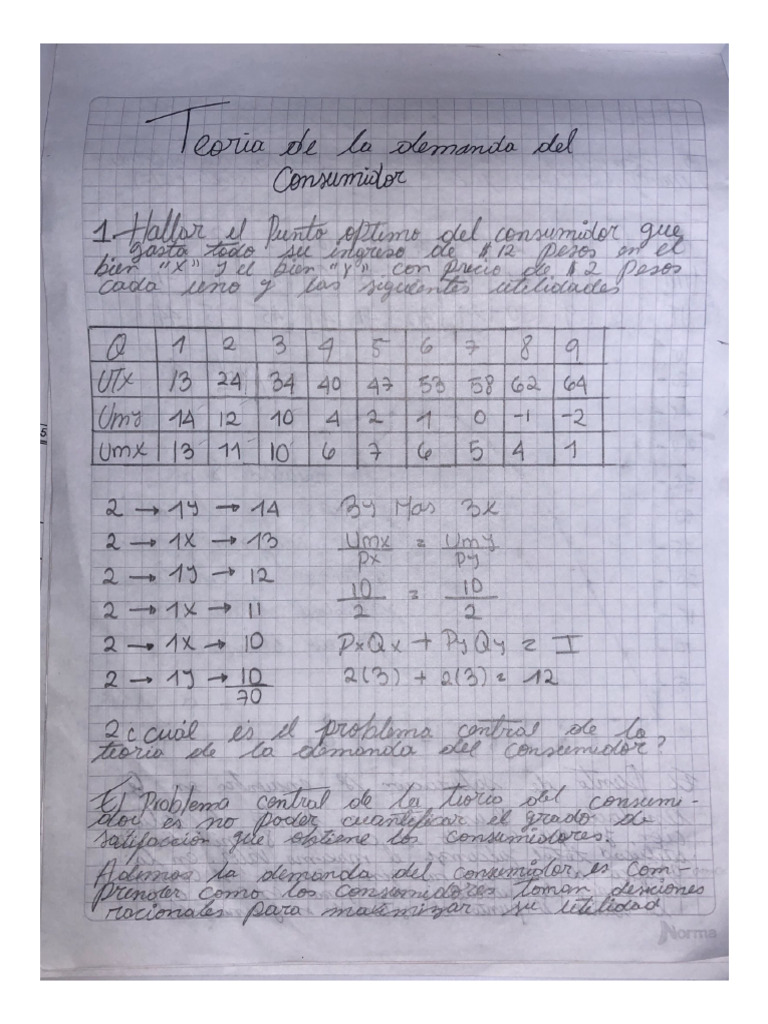 Teoria de la demanda del
Consumidor
1. Hallar el Punto optimo del consumidor que
gasta todo su ingreso de $12 pesos en el
bien "X" y el bien "Y" con precio de $2 pesos
cada uno y las siguientes utilidades
Q 1 2 3 4 5 6 7 8 9
UTx 13 24 34 40 47 53 58 62 64
Umy 14 12 10 4 2 1 0 -1 -2
Umx 13 11 10 6 7 6 5 4 1
2 → 1y → 14 3y Mas 3x
2 → 1x → 13 Umx/Px = Umy/Py
2 → 1y → 12
2 → 1x → 11 10/2 = 10/2
2 → 1x → 10 PxQx + PyQy = I
2 → 1y → 10 2(3) + 2(3) = 12
70
2 ¿ cuál es el problema central de la
teoria de la demanda del consumidor?
El Problema central de la teorio del consumi-
dor es no poder cuantificar el grado de
satifacción que obtiene los consumidores.
Ademas la demanda del consumidor, es com-
prender como los consumidores toman desiciones
racionales para maximizar su utilidad
Norma